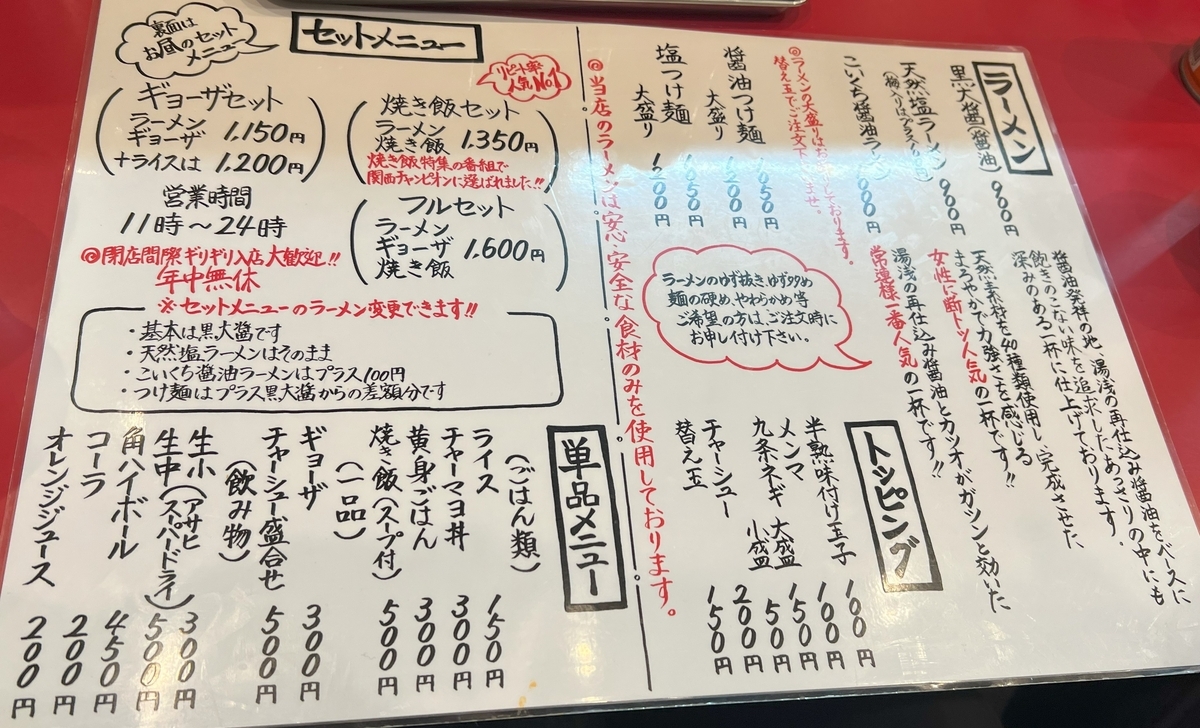 ラーメン
黒大醤(醤油) 900円
醤油発祥の地、湯浅の再仕込み醤油をベースに
飽きのこない味を追求したためあっさりの中にも
深みのある一杯に仕上げております。
天然塩ラーメン 900円
天然素材を40種類使用し、完成させた
まろやかで力強さを感じる
女性に断トツ人気の一杯です!!
こいくち醤油ラーメン 1000円
湯浅の再仕込み醤油とカツオがガツンと効いた
常連様一番人気の一杯です!!
◎ラーメンの大盛りはお断りしております。
替え玉でご注文下さいませ。
醤油つけ麺 1050円
大盛り 1200円
塩つけ麺 1050円
大盛り 1200円
ラーメンのゆず抜き、ゆず多め
麺の硬め、やわらかめ等
ご希望の方は、ご注文時に
お申し付け下さい。
トッピング
半熟味付け玉子 100円
メンマ 100円
九条ネギ 大盛 150円
小盛 50円
チャーシュー 200円
替え玉 150円
◎当店のラーメンは安心・安全な食材のみを使用しております。
裏面は
お昼のセット
メニュー
セットメニュー
リピート率
人気No.1
ギョーザセット
ラーメン
ギョーザ 1.150円
+ライスは 1.200円
焼き飯セット
ラーメン
焼き飯 1.350円
焼き飯特集の番組で
関西チャンピオンに選ばれました!!
営業時間
11時～24時
◎閉店間際ギリギリ入店大歓迎!!
年中無休
フルセット
ラーメン
ギョーザ 1.600円
焼き飯
※セットメニューのラーメン変更できます!!
・基本は黒大醤です
・天然塩ラーメンはそのまま
・こいくち醤油ラーメンはプラス100円
・つけ麺はプラス黒大醤からの差額分です
単品メニュー
(ごはん類)
ライス 150円
チャーマヨ丼 300円
黄身ごはん 300円
焼き飯(スープ付) 500円
(一品)
ギョーザ 300円
チャーシュー盛合せ 500円
(飲み物)
生小(アサヒ 300円
生中(スーパードライ) 500円
角ハイボール 450円
コーラ 200円
オレンジジュース 200円